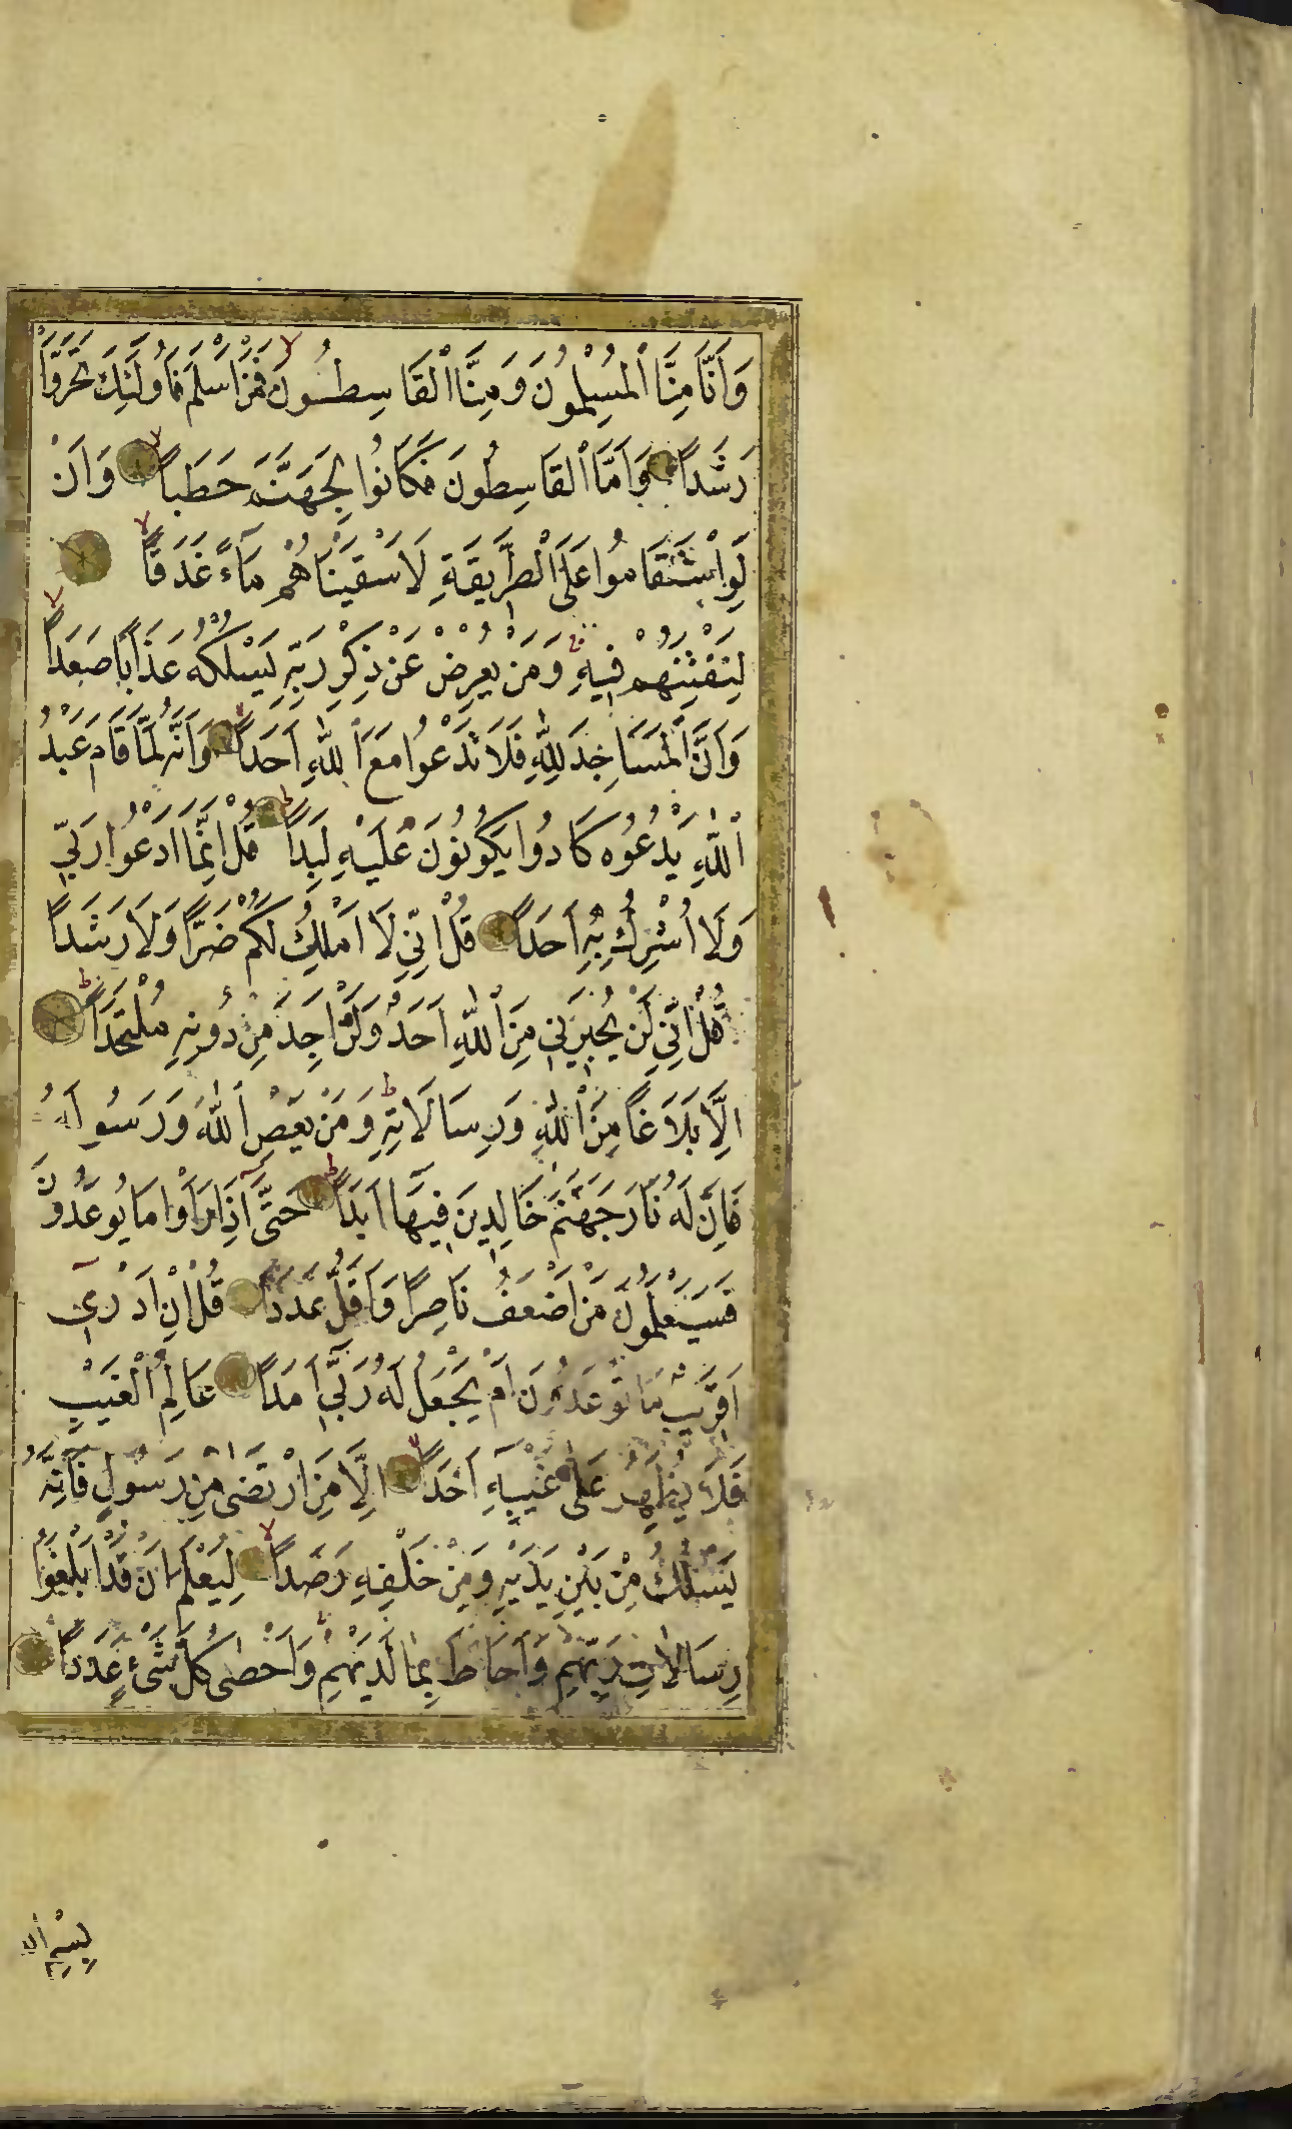 وَاَنَّا مِنَّا الْمُسْلِمُونَ وَمِنَّا الْقَاسِطُونَ فَمَنْ اَسْلَمَ فَاُولٰئِكَ تَحَرَّوْا
رَشَدًا وَاَمَّا الْقَاسِطُونَ فَكَانُوا لِجَهَنَّمَ حَطَبًا وَاَنْ
لَوِ اسْتَقَامُوا عَلَى الطَّرِيقَةِ لَاَسْقَيْنَاهُمْ مَآءً غَدَقًا
لِنَفْتِنَهُمْ فِيهِ وَمَنْ يُعْرِضْ عَنْ ذِكْرِ رَبِّهِ يَسْلُكْهُ عَذَابًا صَعَدًا
وَاَنَّ الْمَسَاجِدَ لِلّٰهِ فَلَا تَدْعُوا مَعَ اللّٰهِ اَحَدًا وَاَنَّهُ لَمَّا قَامَ عَبْدُ
اللّٰهِ يَدْعُوهُ كَادُوا يَكُونُونَ عَلَيْهِ لِبَدًا قُلْ اِنَّمَا اَدْعُوا رَبِّي
وَلَا اُشْرِكُ بِهِ اَحَدًا قُلْ اِنِّي لَا اَمْلِكُ لَكُمْ ضَرًّا وَلَا رَشَدًا
قُلْ اِنِّي لَنْ يُجِيرَنِي مِنَ اللّٰهِ اَحَدٌ وَلَنْ اَجِدَ مِنْ دُونِهِ مُلْتَحَدًا
اِلَّا بَلَاغًا مِنَ اللّٰهِ وَرِسَالَاتِهِ وَمَنْ يَعْصِ اللّٰهَ وَرَسُولَهُ
فَاِنَّ لَهُ نَارَ جَهَنَّمَ خَالِدِينَ فِيهَا اَبَدًا حَتّٰى اِذَا رَاَوْا مَا يُوعَدُونَ
فَسَيَعْلَمُونَ مَنْ اَضْعَفُ نَاصِرًا وَاَقَلُّ عَدَدًا قُلْ اِنْ اَدْرِي
اَقَرِيبٌ مَا تُوعَدُونَ اَمْ يَجْعَلُ لَهُ رَبِّي اَمَدًا عَالِمُ الْغَيْبِ
فَلَا يُظْهِرُ عَلٰى غَيْبِهِ اَحَدًا اِلَّا مَنِ ارْتَضٰى مِنْ رَسُولٍ فَاِنَّهُ
يَسْلُكُ مِنْ بَيْنِ يَدَيْهِ وَمِنْ خَلْفِهِ رَصَدًا لِيَعْلَمَ اَنْ قَدْ اَبْلَغُوا
رِسَالَاتِ رَبِّهِمْ وَاَحَاطَ بِمَا لَدَيْهِمْ وَاَحْصٰى كُلَّ شَيْءٍ عَدَدًا
بِسْمِ